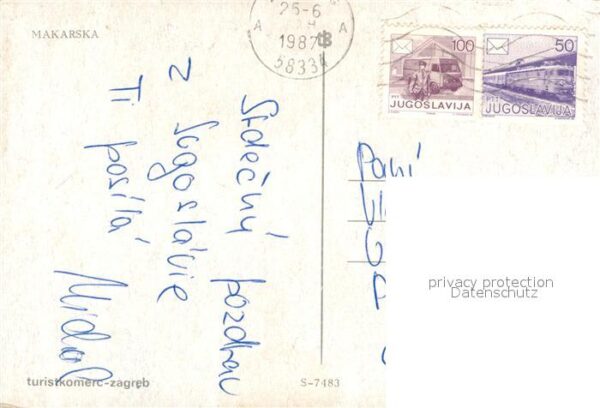 MAKARSKA
25-6
1987
5833
100
JUGOSLAVIJA
50
PTT
JUGOSLAVIJA
Srdečný pozdrav
z
Jugoslávie
Ti posílá
Michal
Paní
privacy protection
Datenschutz
turistkomerc-zagreb
S-7483